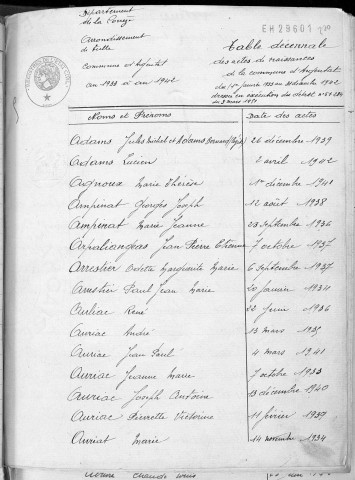 Département
de la Corrèze
Arrondissement
de Tulle
Commune d'
an 1933 à an 1942
EH 29601
Table décennale
des actes de naissances
de la commune d'
du 1er janvier 1933 au 31 décembre 1942
dressée en exécution du décret
du 3 mars 1951
Noms et Prénoms Date des actes
Adams Jules Michel et Adams 26 décembre 1939
Adams Lucien 2 avril 1942
Agnoux Marie Thérèse 1er décembre 1941
Ampinat Georges Joseph 12 août 1938
Ampinat Marie Jeanne 23 septembre 1936
Arpaliangeas Jean Pierre Etienne 7 octobre 1937
Arrestier Odette Marguerite Marie 6 septembre 1937
Arrestier Paul Jean Marie 20 janvier 1934
Auliac René 22 juin 1936
Auriac André 13 mars 1935
Auriac Jean Paul 4 mars 1941
Auriac Jeanne Marie 7 octobre 1933
Auriac Joseph Antoine 13 décembre 1940
Auriac Pierrette Victorine 11 février 1937
Auriat Marie 14 novembre 1934